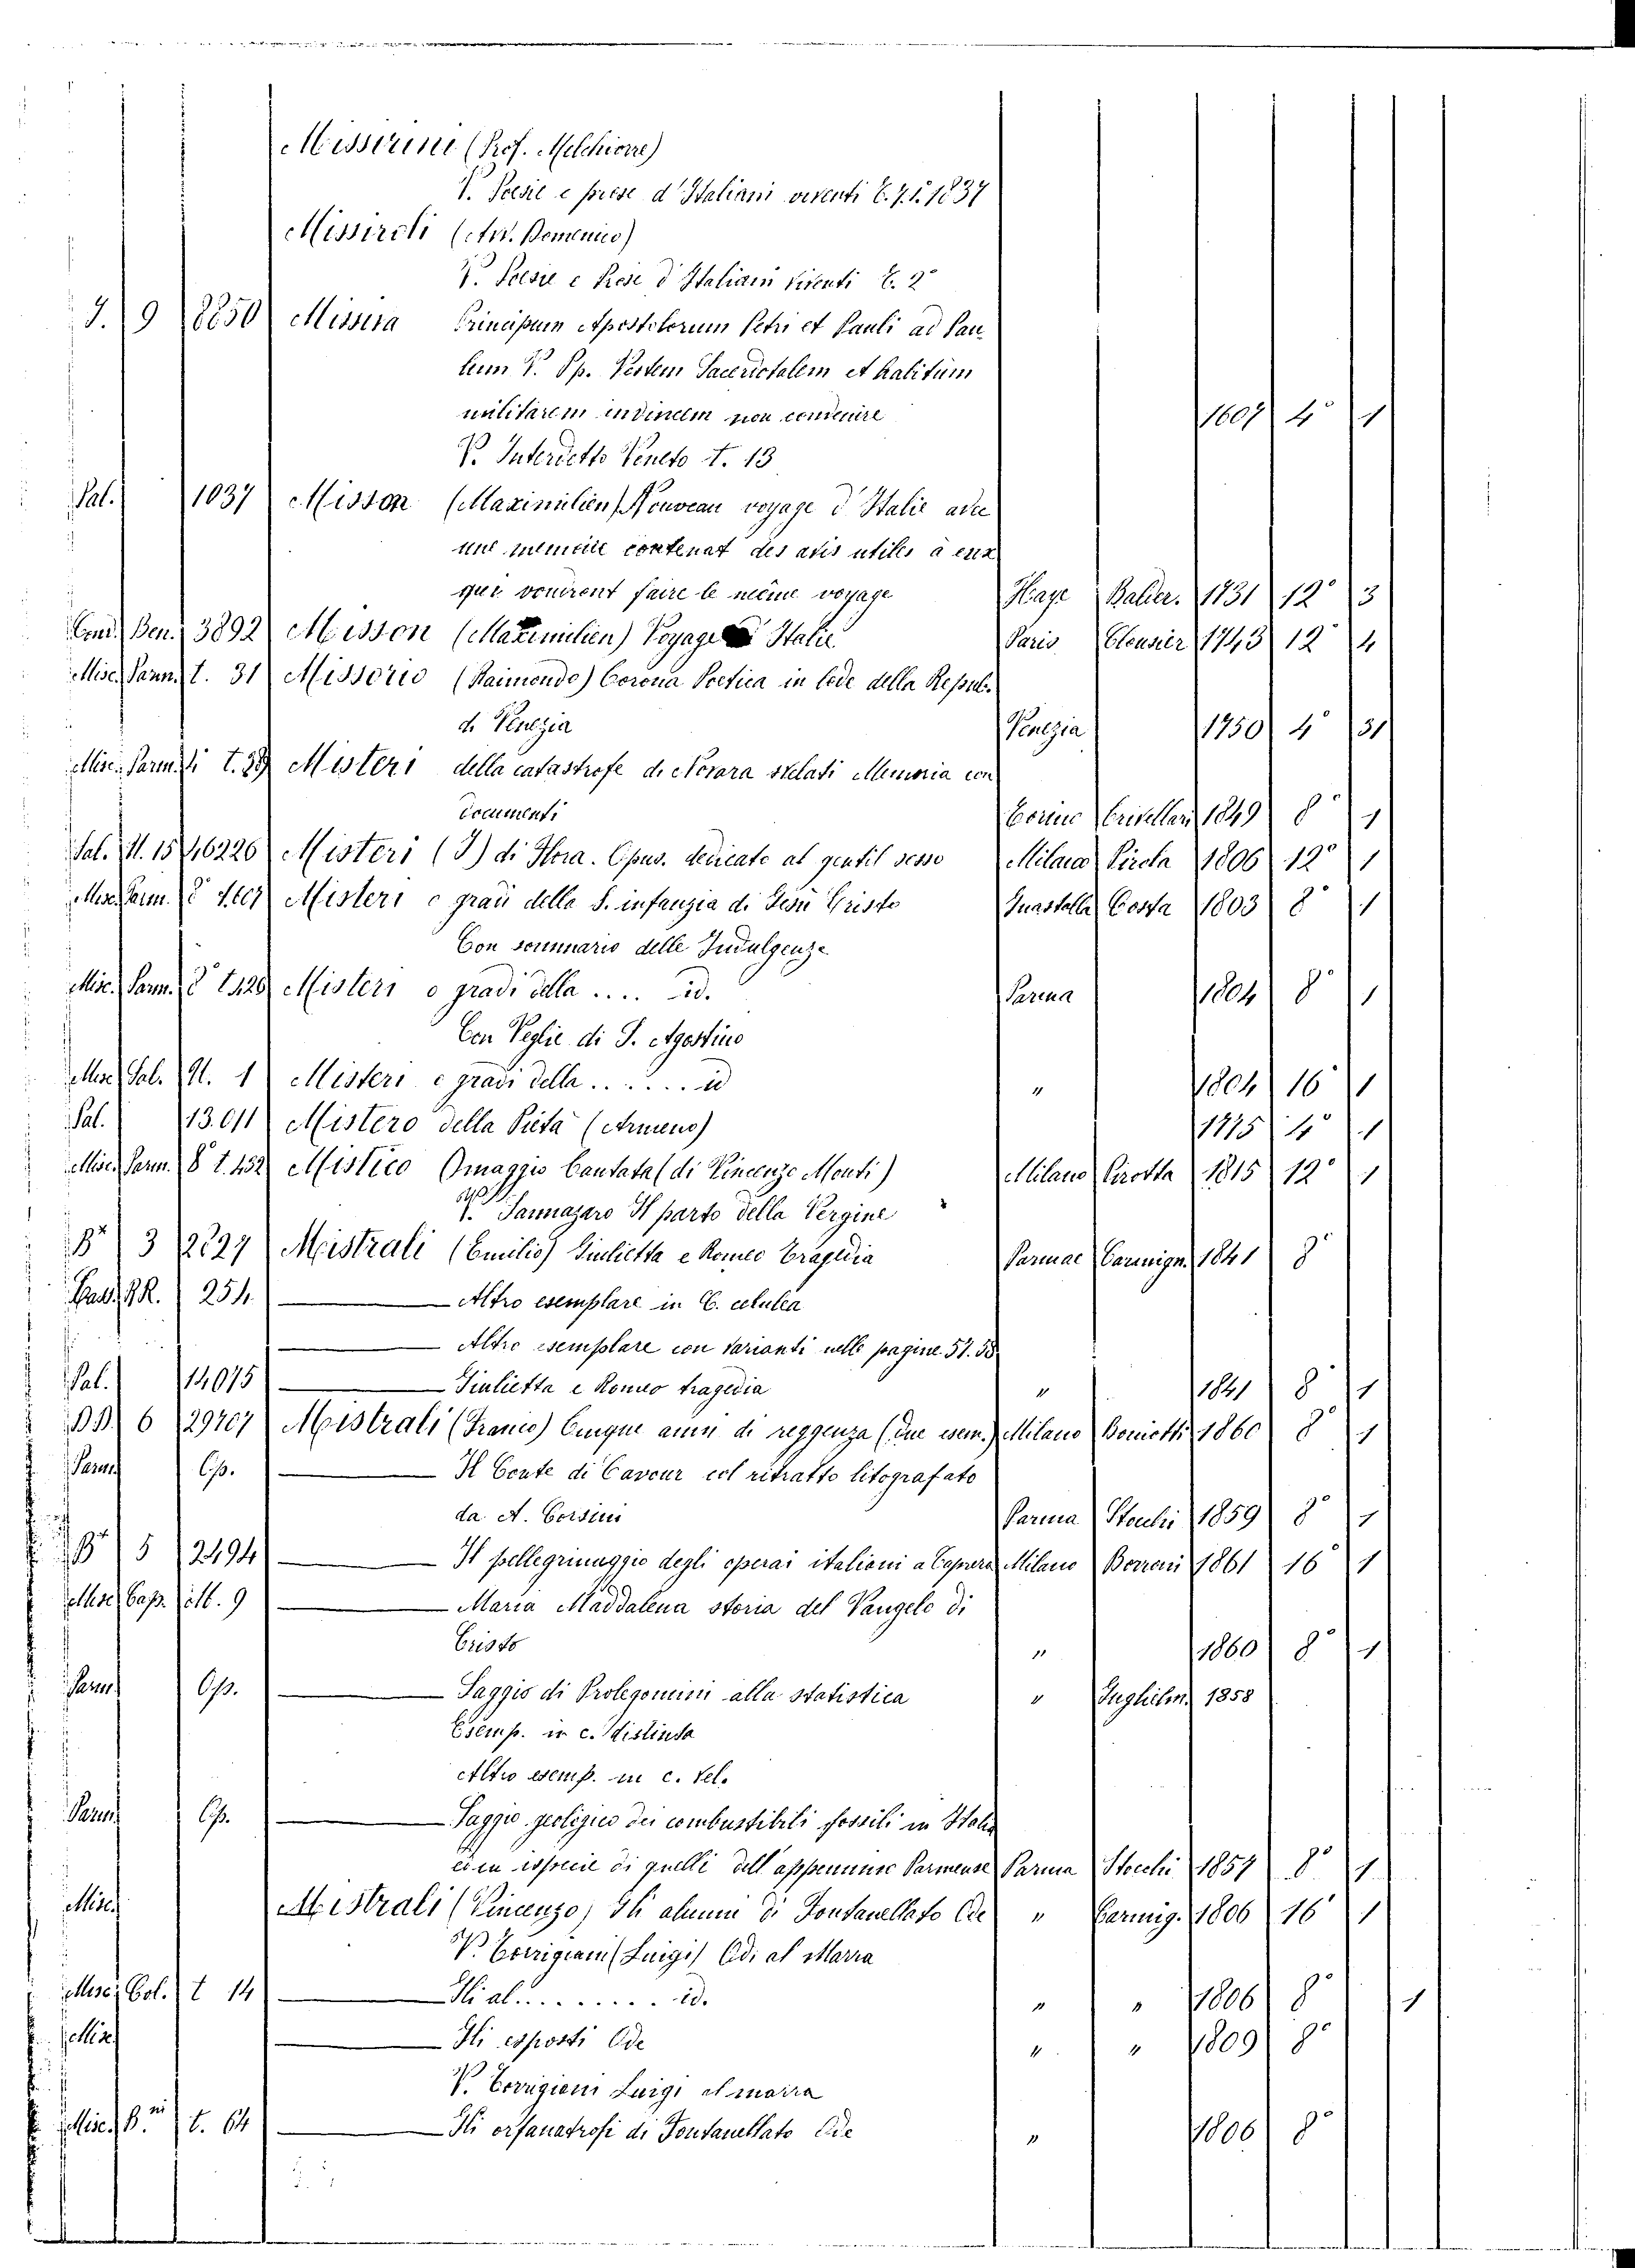 Missirini (Prof. Melchiorre)
V. Poesie e prose d'Italiani viventi T. 7. 1837
Missiroli (Avv. Domenico)
V. Poesie e Prose d'Italiani viventi T. 2°
J. 9 8250 Missiva Principum Apostolorum Petri et Pauli ad Pau-
lum V. Pp. Vestem Sacerdotalem et habitum
militarem invincem non convenire 1607 4° 1
V. Interdetto Veneto t. 13
Pal. 1037 Misson (Maximilien) Nouveau voyage d'Italie avec
une memoire contenat des avis utiles à eux
qui voudront faire le même voyage Haye 1731 12° 3
Cond. Ben. 3892 Misson (Maximilien) Voyage Italie Paris Clousier 1743 12 4
Misc. Parm. t. 31 Missorio (Raimondo) Corona Poetica in lode della Repub.
di Venezia Venezia 1750 4° 31
Misc. Parm. t. Misteri della catastrofe di Novara svelati Memoria con
documenti Torino Crivellari 1849 8° 1
Pal. 16226 Misteri (I) di Flora. Opus. dedicato al gentil sesso Milano Pirola 1806 12° 1
Misc. Parm. 8° Misteri o gradi della S. infanzia di Gesù Cristo Guastalla Costa 1803 8° 1
Con sommario delle Indulgenze
Misc. Parm. 8° Misteri o gradi della .... id. Parma 1804 8° 1
Con Veglie di S. Agostino
Misc. Pal. 1 Misteri e gradi della ...... id " 1804 16° 1
Pal. 13.011 Mistero della Pietà (Armeno) 1775 4° 1
Misc. Parm. 8° t. 452 Mistico Omaggio Cantata (di Vincenzo Monti) Milano Pirotta 1815 12° 1
V. Sannazaro Il parto della Vergine
B** 3 2227 Mistrali (Emilio) Giulietta e Romeo Tragedia Parmae Carmign. 1841 8°
R. 254 —— Altro esemplare in C. celulea
—— Altro esemplare con varianti nelle pagine 57. 58
Pal. 14075 —— Giulietta e Romeo tragedia " 1841 8° 1
6 29707 Mistrali (Franco) Cinque anni di reggenza (due esem.) Milano 1860 8° 1
Parm. Op. —— Il Conte di Cavour col ritratto litografato
da A. Corsini Parma Stocchi 1859 8° 1
B** 5 2494 —— Il pellegrinaggio degli operai italiani a Caprera Milano Borroni 1861 16° 1
Misc. Cap. M. 9 —— Maria Maddalena storia del Vangelo di
Cristo " 1860 8° 1
Parm. Op. —— Saggio di Prolegomini alla statistica " Guglielm. 1858
Esemp. in c. distinta
Altro esemp. in c. vel.
Parm. Op. —— Saggio geologico dei combustibili fossili in Italia
ed in ispecie di quelli dell'appennino Parmense Parma Stocchi 1857 8° 1
Misc. Mistrali (Vincenzo) Gli alunni di Fontanellato Ode " Carmig. 1806 16° 1
V. Corrigiani (Luigi) Odi al Marra
Misc. Col. t 14 —— Gli al. ........ id. " " 1806 8° 1
Misc. —— Gli esposti Ode " " 1809 8°
V. Corrigioni Luigi al marra
Misc. B.ni t. 64 —— Gli orfanatrofi di Fontanellato Ode " 1806 8°